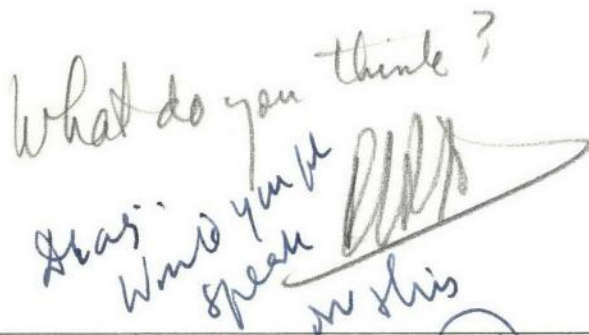 What do you think?
Would you pl
speak
on this